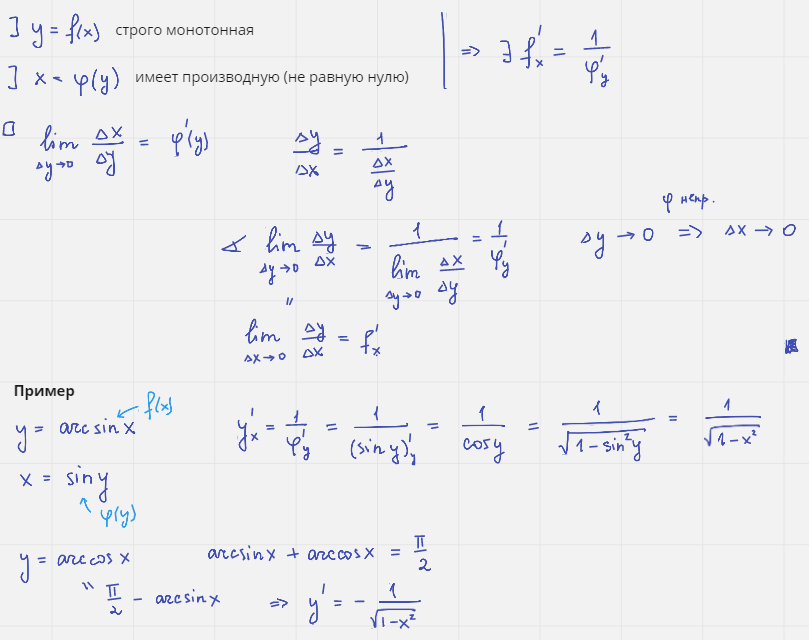 ∃ y = f(x) строго монотонная
∃ x = φ(y) имеет производную (не равную нулю)
=> ∃ f'ₓ = 1/φ'_y
□ lim_{Δy→0} Δx/Δy = φ'(y) Δy/Δx = 1/(Δx/Δy)
∢ lim_{Δy→0} Δy/Δx = 1/(lim_{Δy→0} Δx/Δy) = 1/φ'_y
φ непр.
Δy → 0 => Δx → 0
"
lim_{Δx→0} Δy/Δx = f'ₓ
Пример
y = arcsin x f(x)
y'ₓ = 1/φ'_y = 1/(sin y)'_y = 1/cos y = 1/√(1-sin²y) = 1/√(1-x²)
x = sin y
φ(y)
y = arccos x arcsin x + arccos x = π/2
" π/2 - arcsin x => y' = - 1/√(1-x²)